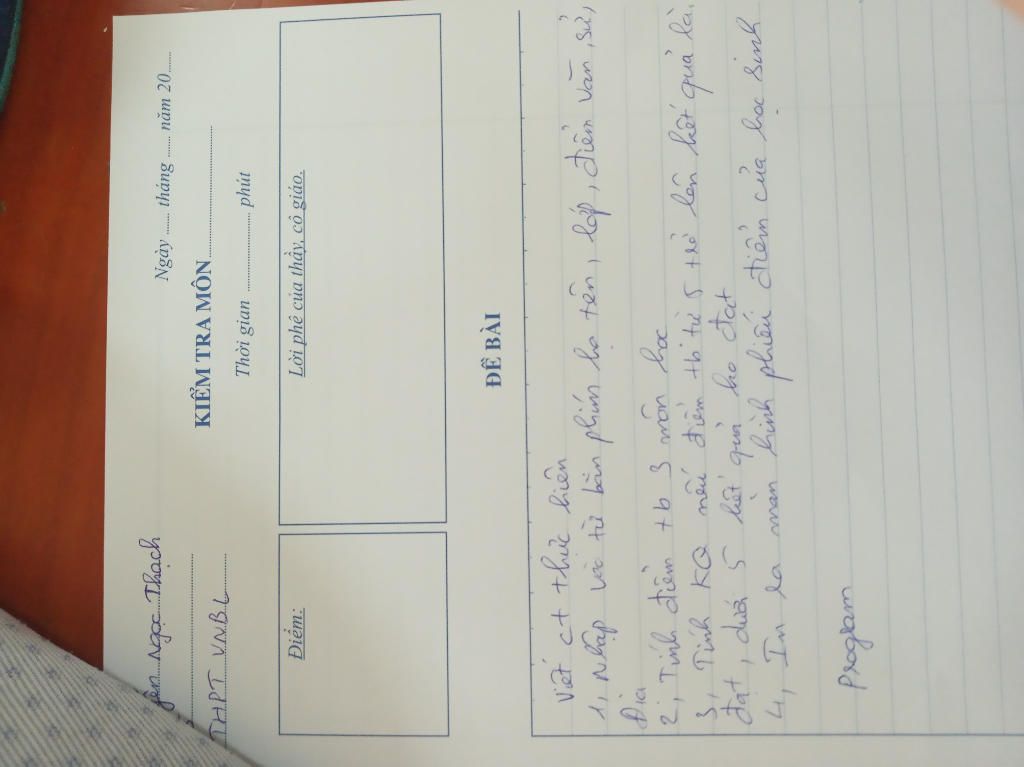 yên Ngọc Thạch
Ngày ...... tháng ...... năm 20......
THPT V.N.B.L
KIỂM TRA MÔN
Thời gian ................ phút
Điểm:
Lời phê của thầy, cô giáo.
ĐỀ BÀI
Viết ct thực hiện
1, Nhập vào từ bàn phím họ tên, lớp, điểm văn, sử,
Địa
2, Tính điểm tb 3 môn học
3, Tính KQ nếu điểm tb từ 5 trở lên kết quả là
đạt, dưới 5 kết quả ko đạt
4, In ra màn hình phiếu điểm của học sinh
Program